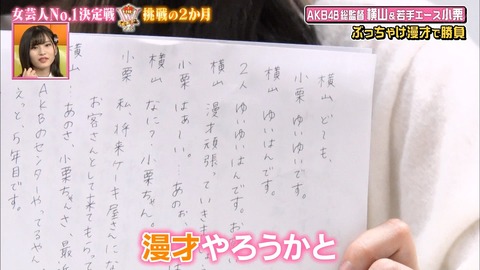 女芸人No.1決定戦 THE W 挑戦の2か月
AKB48 総監督 横山&若手エース小栗
ぶっちゃけ漫才で勝負
横山 ど〜も、
小栗 ゆいゆいです。
横山 ゆいはんです。
2人 ゆいゆいはんです。お
横山 漫才頑張っていきま
小栗 はぁ〜い。…あのぉ、
横山 なに?小栗ちゃん。
小栗 私、将来ケーキ屋さんにな
お客さんとして来てもらって
横山 …あのさ、小栗ちゃんさ、最近
AKBのセンターやってるやん
えっと、5年目です。
漫才やろうかと